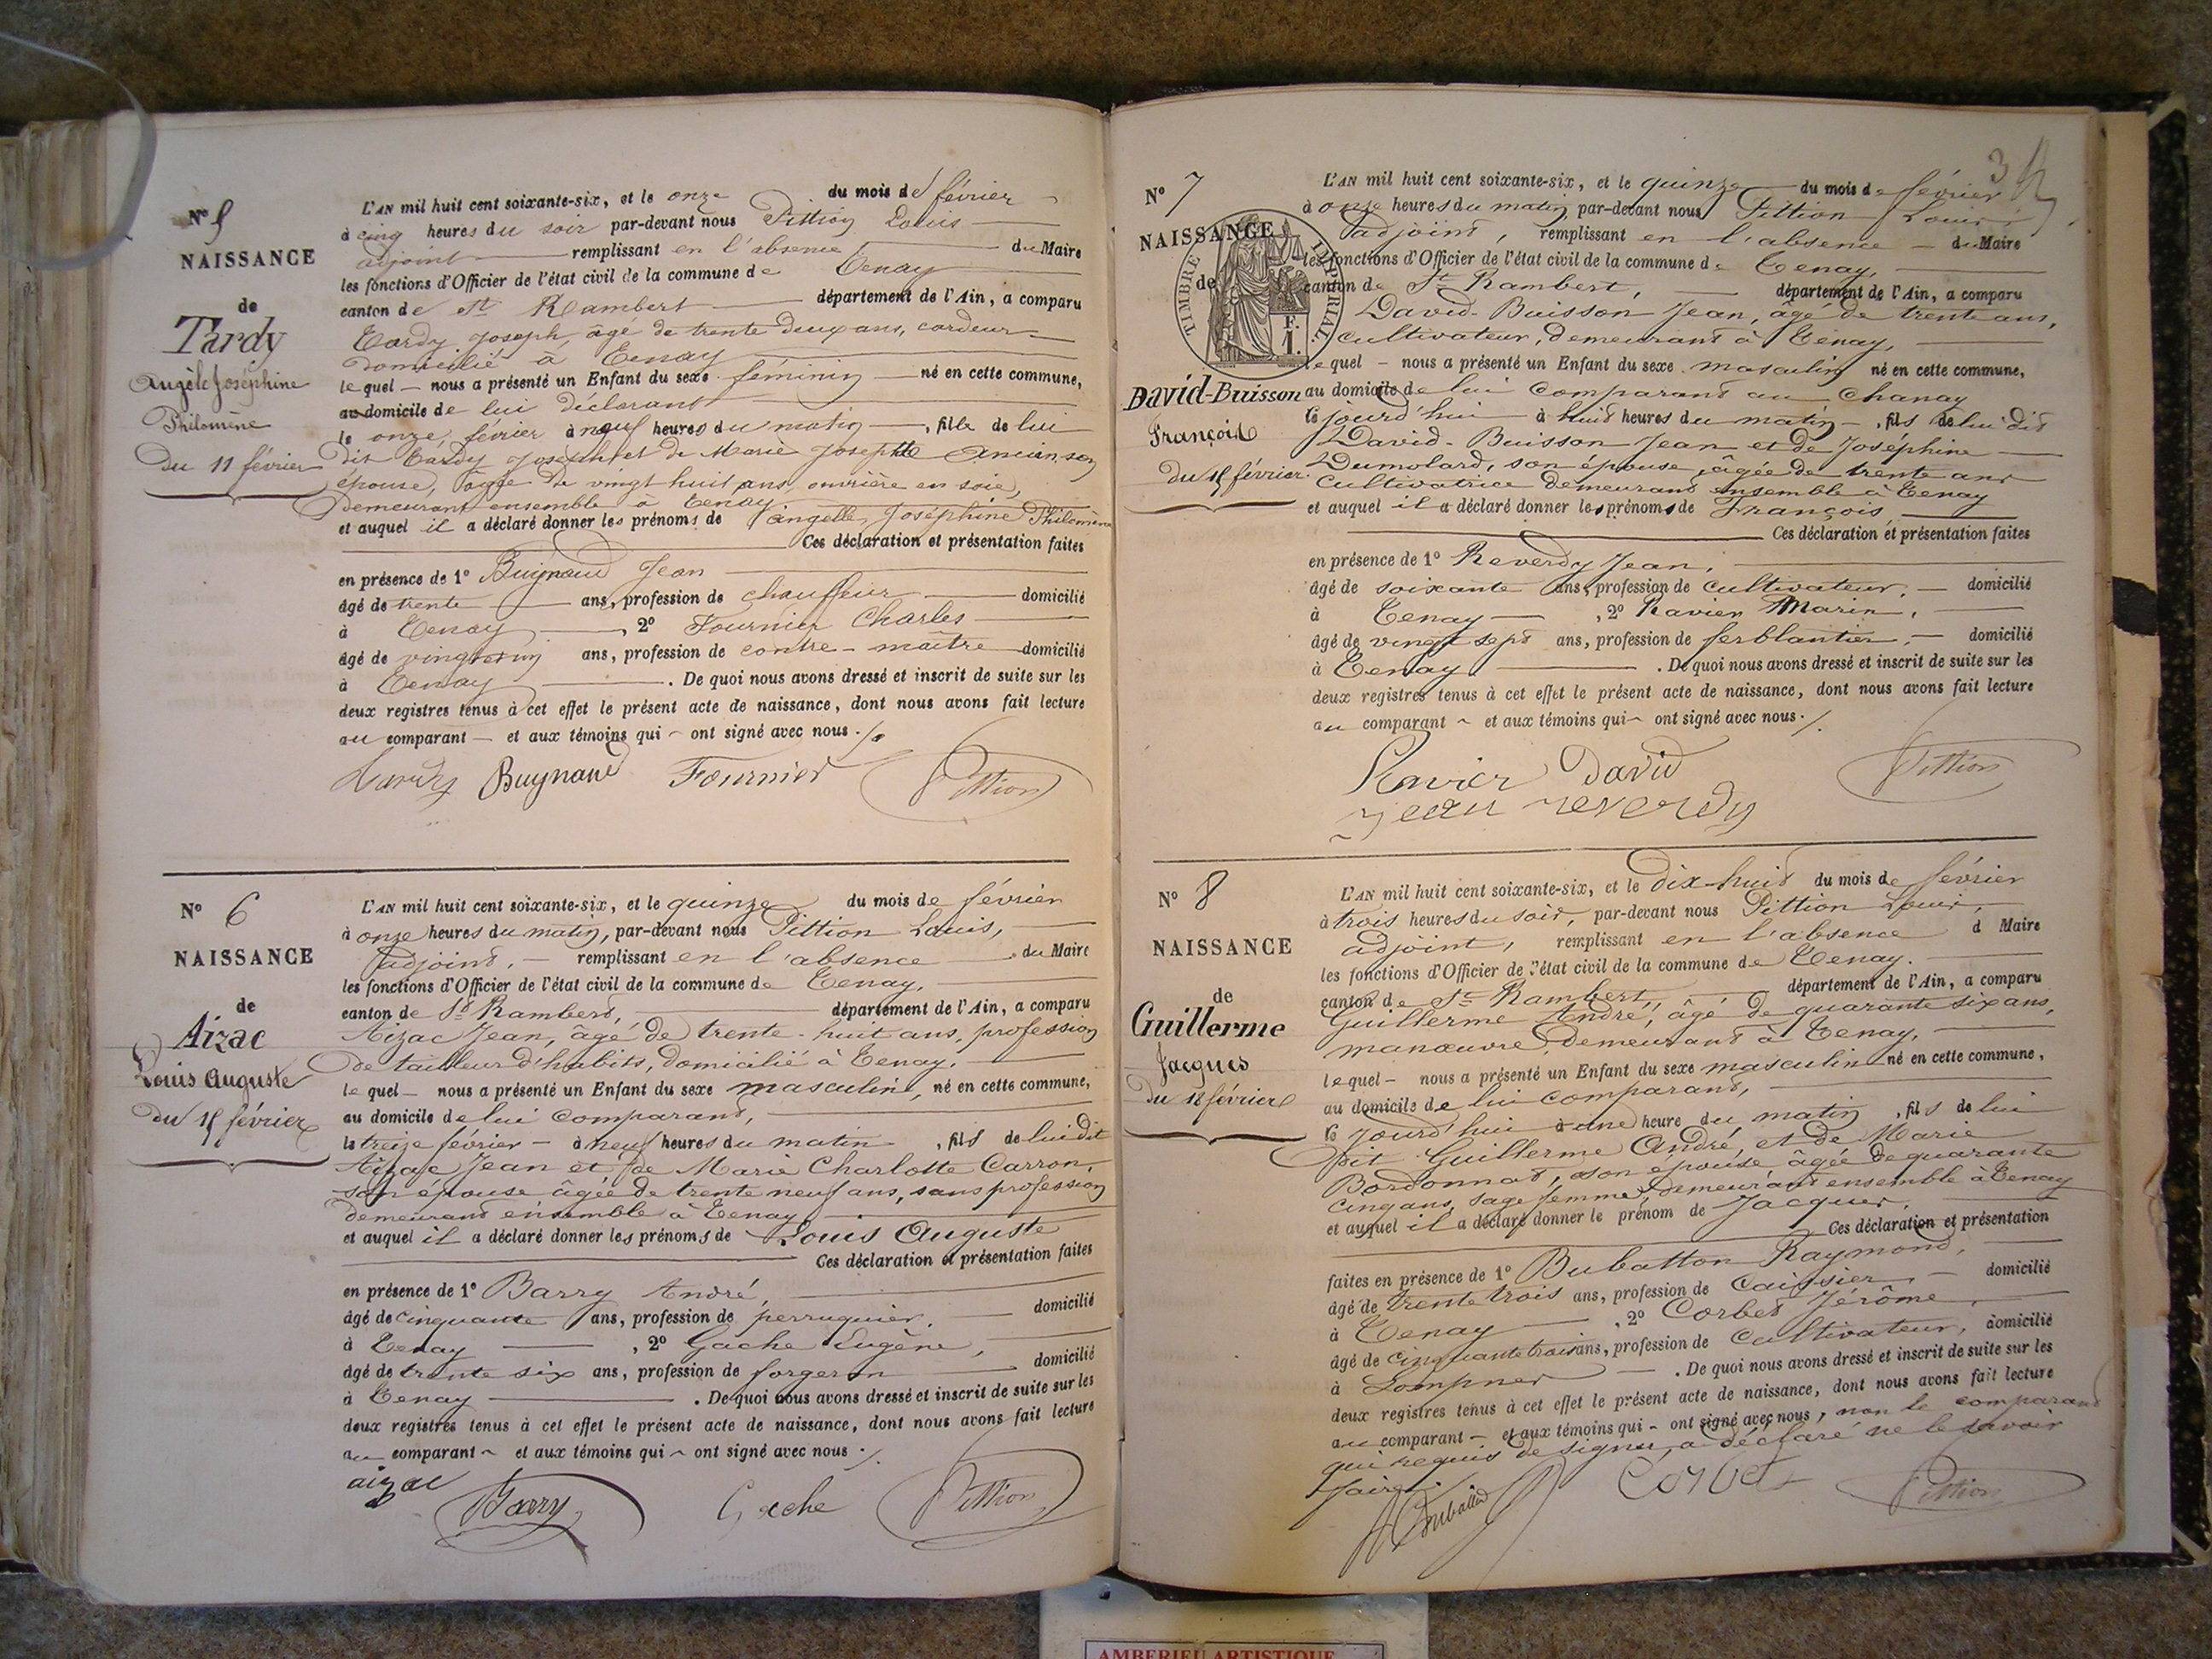 N° 5
NAISSANCE
de
Tardy
Angèle Joséphine
Philomène
Du 11 février
L'AN mil huit cent soixante-six, et le onze du mois de février
à cinq heures du soir par-devant nous Pittion Louis
adjoint remplissant en l'absence du Maire
les fonctions d'Officier de l'état civil de la commune de Tenay
canton de St Rambert département de l'Ain, a comparu
Tardy Joseph, âgé de trente deux ans, cardeur
domicilié à Tenay
lequel nous a présenté un Enfant du sexe féminin né en cette commune,
au domicile de lui déclarant
le onze février à neuf heures du matin, fille de lui
dit Tardy Joseph et de Marie Josephte Ancian son
épouse, âgée de vingt huit ans, ouvrière en soie,
demeurant ensemble à Tenay
et auquel il a déclaré donner les prénoms de Angelle Joséphine Philomène
Ces déclaration et présentation faites
en présence de 1° Buynand Jean
âgé de trente ans, profession de chauffeur domicilié
à Tenay, 2° Fournier Charles
âgé de vingt un ans, profession de contre-maître domicilié
à Tenay. De quoi nous avons dressé et inscrit de suite sur les
deux registres tenus à cet effet le présent acte de naissance, dont nous avons fait lecture
au comparant et aux témoins qui ont signé avec nous ./.
Tardy Buynand Fournier Pittion
N° 6
NAISSANCE
de
Aizac
Louis Auguste
Du 15 février
L'AN mil huit cent soixante-six, et le quinze du mois de février
à onze heures du matin, par-devant nous Pittion Louis,
adjoint, remplissant en l'absence du Maire
les fonctions d'Officier de l'état civil de la commune de Tenay,
canton de St Rambert, département de l'Ain, a comparu
Aizac Jean, âgé de trente-huit ans, profession
de tailleur d'habits, domicilié à Tenay,
lequel nous a présenté un Enfant du sexe masculin, né en cette commune,
au domicile de lui comparant,
le treize février à neuf heures du matin, fils de lui dit
Aizac Jean et de Marie Charlotte Carron,
son épouse âgée de trente neuf ans, sans profession
demeurant ensemble à Tenay
et auquel il a déclaré donner les prénoms de Louis Auguste
Ces déclaration et présentation faites
en présence de 1° Barry André,
âgé de cinquante ans, profession de perruquier, domicilié
à Tenay, 2° Gache Eugène,
âgé de trente six ans, profession de forgeron domicilié
à Tenay. De quoi nous avons dressé et inscrit de suite sur les
deux registres tenus à cet effet le présent acte de naissance, dont nous avons fait lecture
au comparant et aux témoins qui ont signé avec nous ./.
aizac Barry Gache Pittion
3
N° 7
NAISSANCE
de
TIMBRE IMPÉRIAL
F.
1.
David-Buisson
François
du 15 février
L'AN mil huit cent soixante-six, et le quinze du mois de février
à onze heures du matin par-devant nous Pittion Louis
adjoint, remplissant en l'absence du Maire
les fonctions d'Officier de l'état civil de la commune de Tenay,
canton de St Rambert, département de l'Ain, a comparu
David-Buisson Jean, âgé de trente ans,
cultivateur, demeurant à Tenay,
lequel nous a présenté un Enfant du sexe masculin né en cette commune,
au domicile de lui comparant au Chanay
le jourd'hui à huit heures du matin, fils de lui dit
David-Buisson Jean et de Joséphine
Dumolard, son épouse, âgée de trente ans
Cultivatrice demeurant ensemble à Tenay
et auquel il a déclaré donner les prénoms de François
Ces déclaration et présentation faites
en présence de 1° Reverdy Jean,
âgé de soixante ans, profession de cultivateur, domicilié
à Tenay, 2° Ravier Marin,
âgé de vingt sept ans, profession de ferblantier, domicilié
à Tenay. De quoi nous avons dressé et inscrit de suite sur les
deux registres tenus à cet effet le présent acte de naissance, dont nous avons fait lecture
au comparant et aux témoins qui ont signé avec nous ./.
Ravier David Pittion
Jean reverdy
N° 8
NAISSANCE
de
Guillerme
Jacques
Du 18 février
L'AN mil huit cent soixante-six, et le dix-huit du mois de février
à trois heures du soir, par-devant nous Pittion Louis,
adjoint, remplissant en l'absence d Maire
les fonctions d'Officier de l'état civil de la commune de Tenay.
canton de St Rambert, département de l'Ain, a comparu
Guillerme André, âgé de quarante six ans,
manœuvre, demeurant à Tenay,
lequel nous a présenté un Enfant du sexe masculin né en cette commune,
au domicile de lui comparant,
le jourd'hui à une heure du matin, fils de lui
dit Guillerme André, et de Marie
Bordonnat, son épouse, âgée de quarante
cinq ans, sage femme, demeurant ensemble à Tenay
et auquel il a déclaré donner le prénom de Jacques,
Ces déclaration et présentation
faites en présence de 1° Bubatton Raymond,
âgé de trente trois ans, profession de Caissier, domicilié
à Tenay, 2° Corbet Jérôme,
âgé de cinquante trois ans, profession de Cultivateur, domicilié
à Lompner. De quoi nous avons dressé et inscrit de suite sur les
deux registres tenus à cet effet le présent acte de naissance, dont nous avons fait lecture
au comparant et aux témoins qui ont signé avec nous, non le comparant
qui requis de signer, a déclaré ne le savoir
faire ./.
Corbet Pittion
AMBERIEU ARTISTIQUE